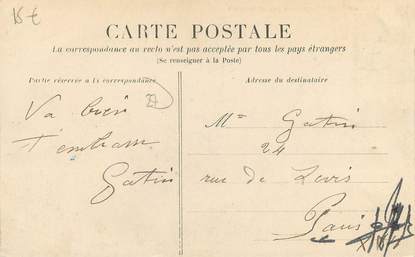 15 €
CARTE POSTALE
La correspondance au recto n'est pas acceptée par tous les pays étrangers
(Se renseigner à la Poste)
Partie réservée à la correspondance
Adresse du destinataire
27
Va bien
t'embrasse
Gatin
Mme Gatin
24
rue de Levis
Paris